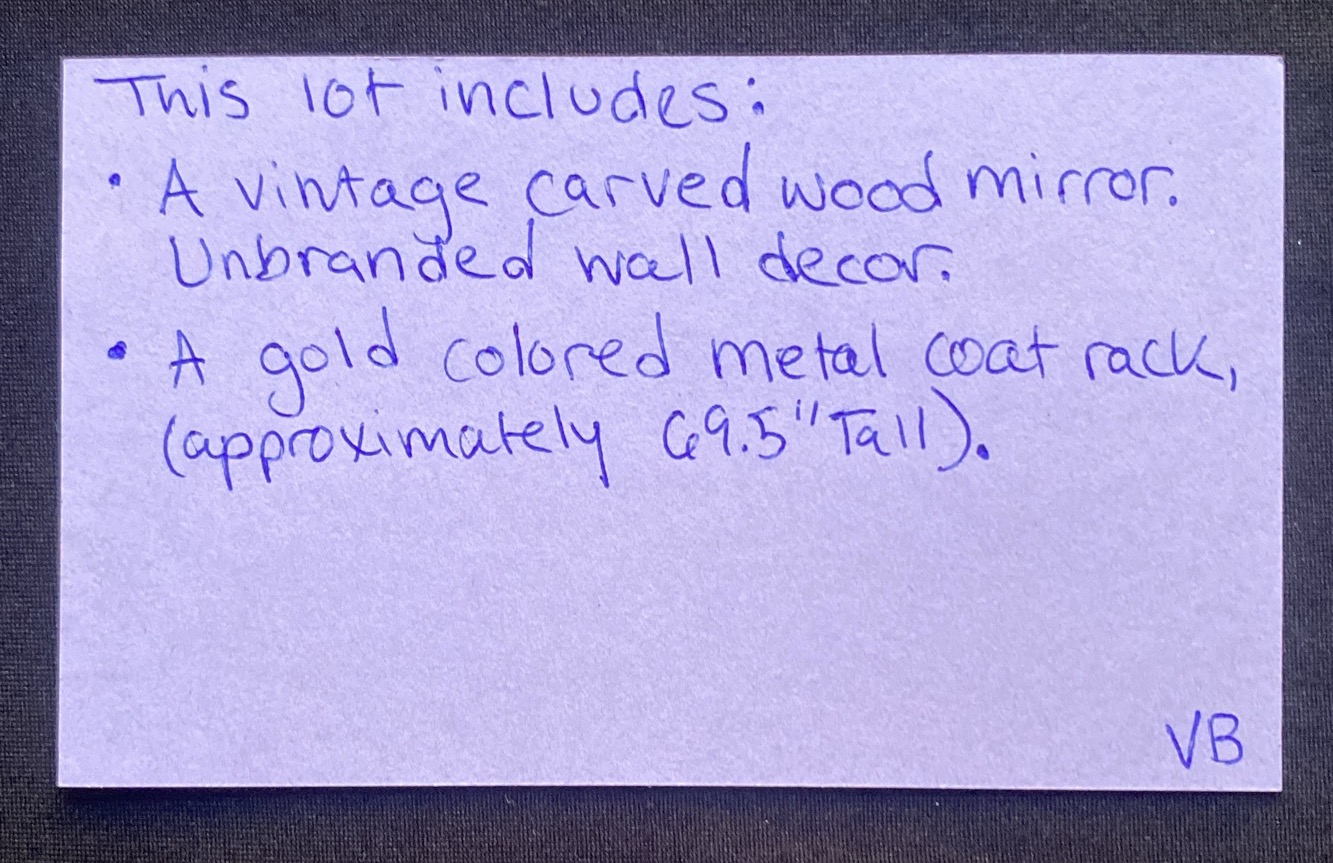 This lot includes:
• A vintage carved wood mirror.
Unbranded wall decor.
• A gold colored metal coat rack,
(approximately 69.5" Tall).
VB